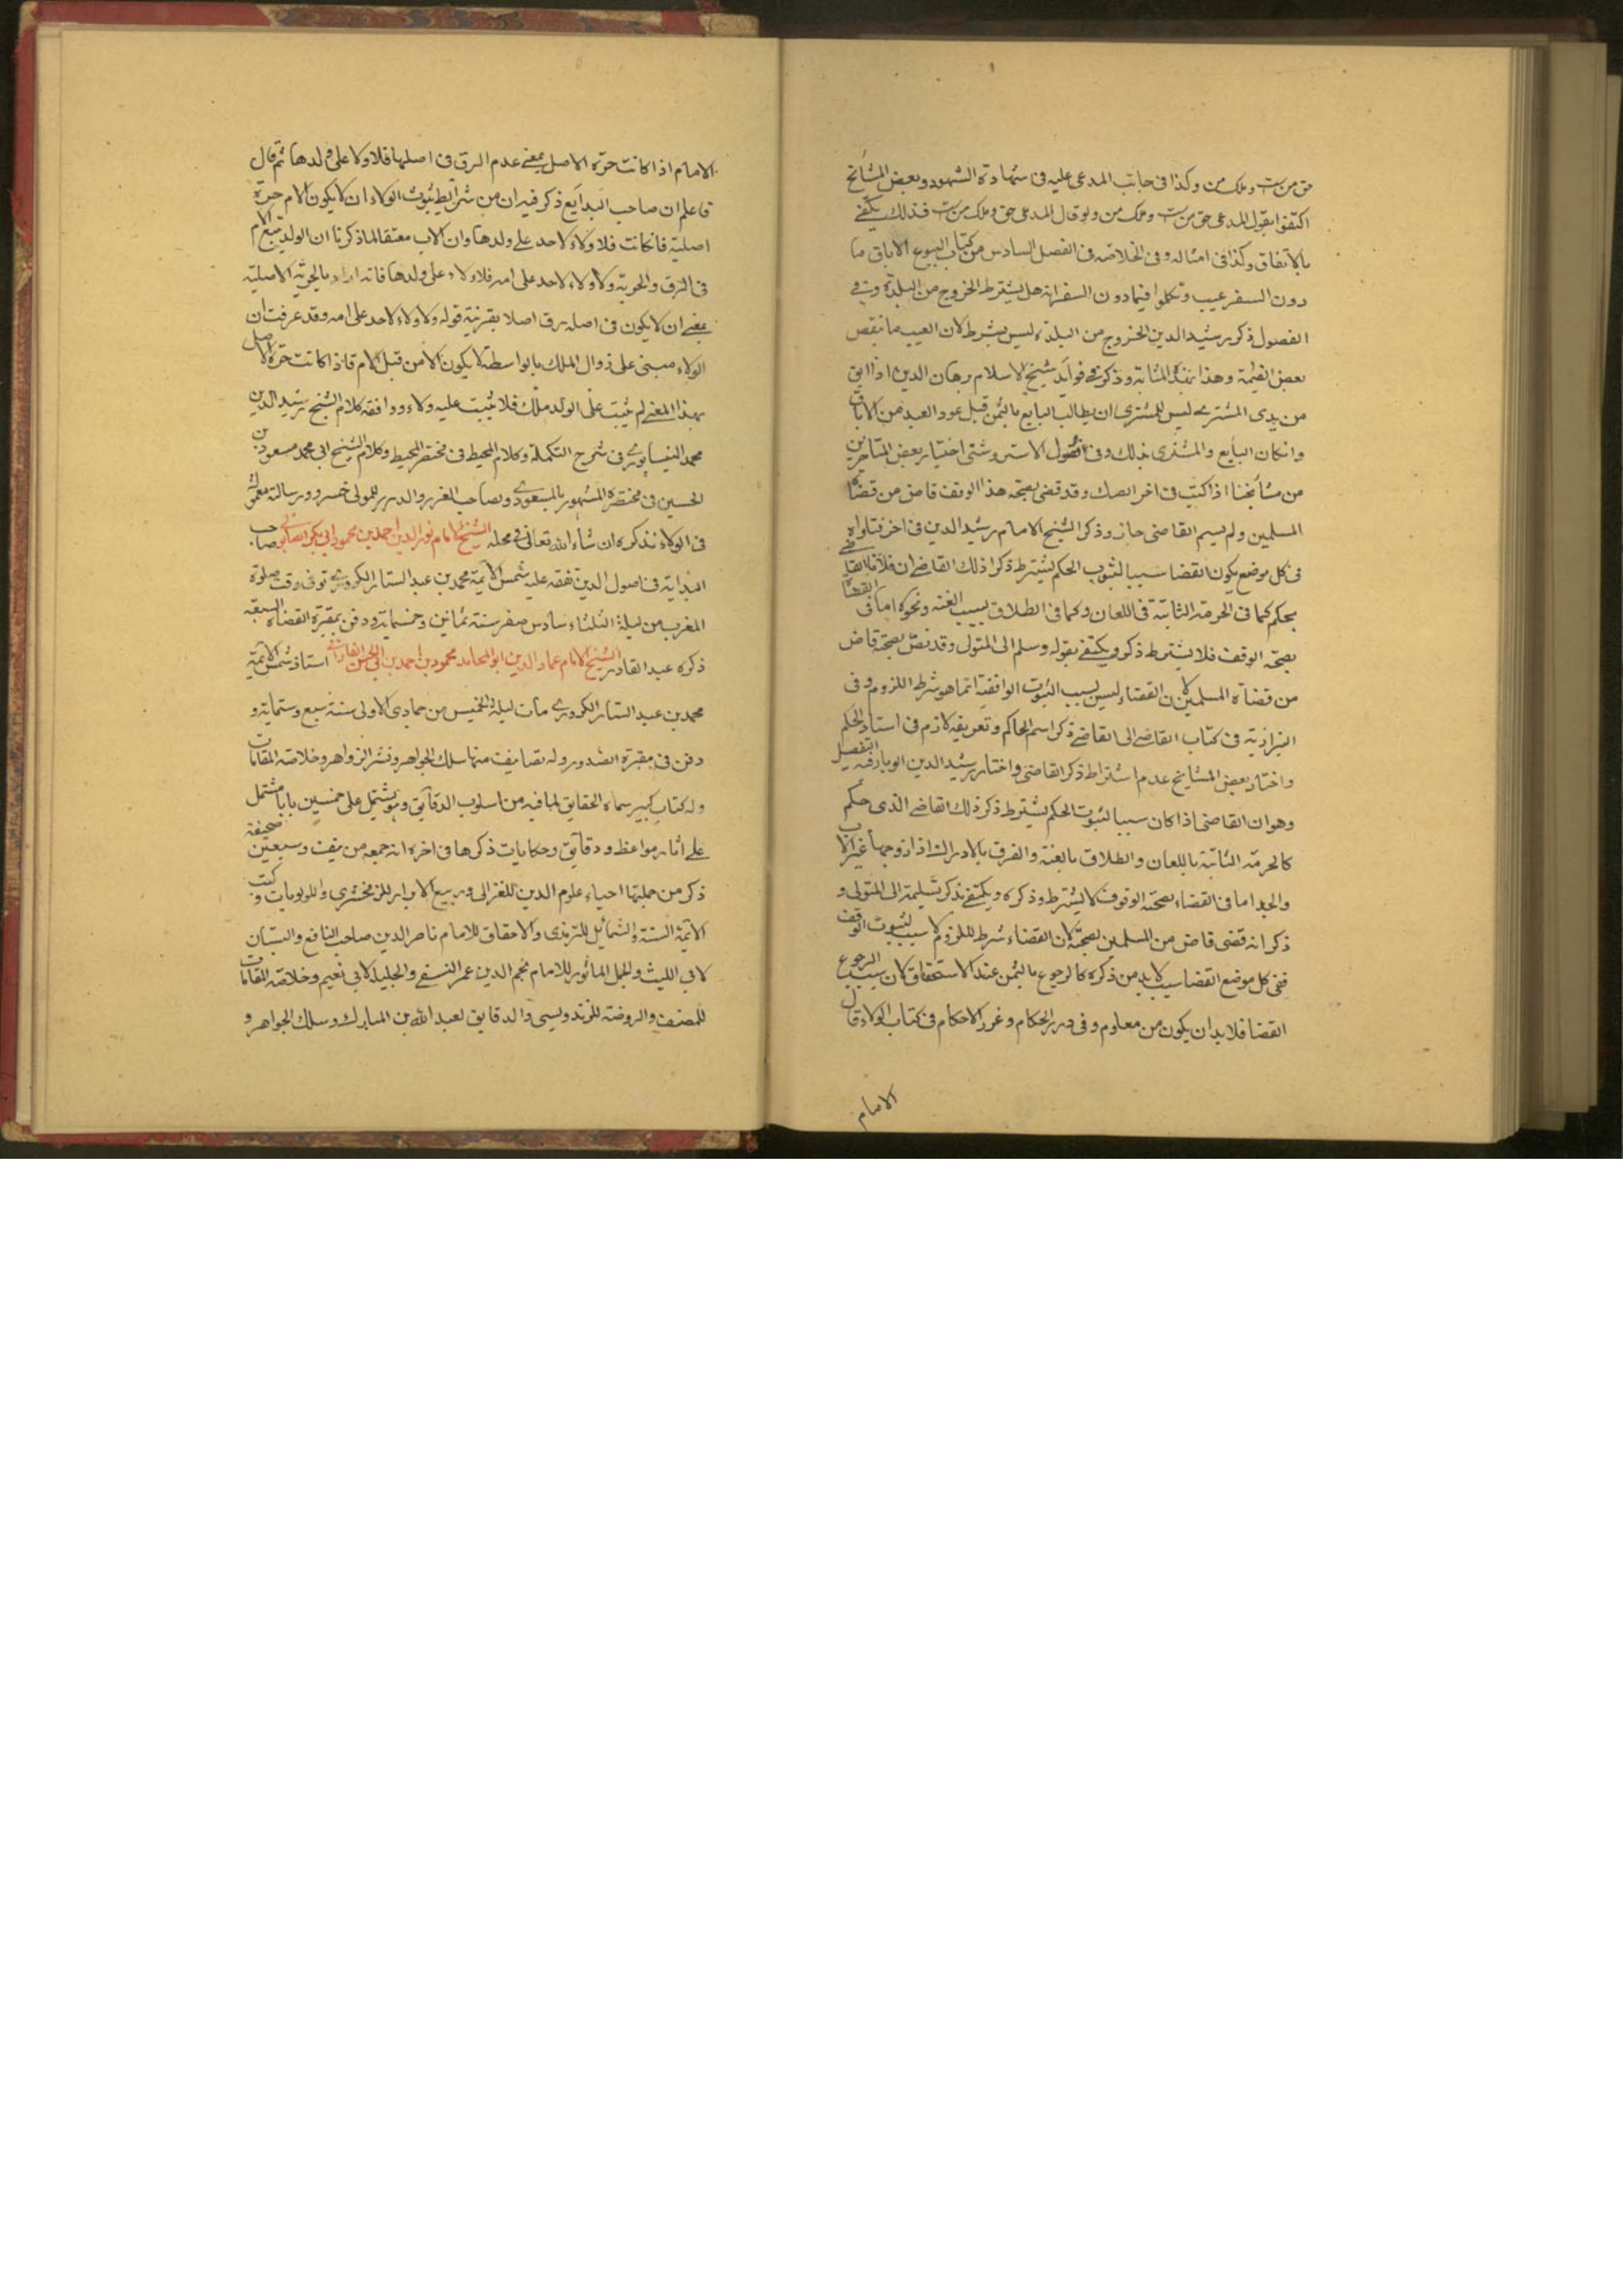 حق من است وملك من وكذا فى جانب المدعى عليه فى شهادة الشهود وبعض المشائخ
اكتفوا بقول المدعى حق من است وملك من ولو قال المدعى حق وملك من است فذلك يكتفى
بالاتفاق وكذا فى امثاله وفى الخلاصة فى الفصل السادس من كتاب البيوع الاباق ما
دون السفر عيب وتكلموا فيما دون السفر انه هل يشترط الخروج من البلدة وفى
الفصول ذكر رشيد الدين الخروج من البلدة ليس بشرط لان العيب ما ينقص
بعض القيمة وهذا بهذه المثابة وذكر فى فوايد شيخ الاسلام برهان الدين اذا ابق
من يدى المشترى ليس للمشترى ان يطالب البايع بالثمن قبل عود العبد من الاباق
وانكان البايع والمشترى بذلك وفى فصول الاستروشنى اختيار بعض المتاخرين
من مشايخنا اذا كتب فى اخر الصك وقد قضى بصحة هذا الوقف قاض من قضاة
المسلمين ولم يسم القاضى جاز وذكر الشيخ الامام رشيد الدين فى اخر فتاواه
فى كل موضع يكون القضا سببا لثبوت الحكم يشترط ذكر ذلك القاضى ان فلانا القاضى
يحكم كما فى الحرمة الثابتة فى اللعان وكما فى الطلاق بسبب العنة ونحوه اما فى القضا
بصحة الوقف فلا يشترط ذكر ويكتفى بقوله وسلم الى المتولى وقد نص بصحة قاض
من قضاة المسلمين لان القضاء ليس بسبب لثبوت الواقفية انما هو شرط اللزوم وفى
البزازية فى كتاب القاضى الى القاضى ذكر اسم الحاكم وتعريفه لازم فى اسناد الحكم
واختار بعض المشايخ عدم اشتراط ذكر القاضى واختار رشيد الدين الوبار فيه التفصيل
وهو ان القاضى اذا كان سببا لثبوت الحكم يشترط ذكر ذلك القاضى الذى حكم
كالحرمة الثابتة باللعان والطلاق بالعنة والفرق بالادراك اذا زوجها غير الاب
والجد اما فى القضاء بصحة الوقوف لا يشترط وذكره ويكتفى بذكر تسليمه الى المتولى و
ذكر انه قضى قاض من المسلمين بصحته لان القضاء شرط للزوم لا سبب لثبوت الوقف
ففى كل موضع القضا سبب لا بد من ذكره كالرجوع بالثمن عند الاستحقاق لان سبب الرجوع
القضا فلا بد ان يكون من معلوم وفى درر الحكام وغرر الاحكام فى كتاب الولاء قال
الامام
الامام اذا كانت حرة الاصل بمعنى عدم الرق فى اصلها فلا ولا على ولدها ثم قال
فاعلم ان صاحب البدايع ذكر فيه ان من شرايط ثبوت الولاء ان لا يكون الام حرة
اصلية فانكانت فلا ولاء لاحد على ولدها وان كان الاب معتقا لما ذكرنا ان الولد يتبع الام
فى الرق والحرية ولا ولاء لاحد على امه فلا ولاء على ولدها فانه اراد بالحرية الاصلية
بمعنى ان لا يكون فى اصله رق اصلا بقرينة قوله ولا ولاء لاحد على امه وقد عرفت ان
الولاء مبنى على زوال الملك بالواسطة لا يكون الا من قبل الام فاذا كانت حرة الاصل
بهذا المعنى لم يثبت على الولد ملك فلا يثبت عليه ولاء ووافقه كلام الشيخ رشيد الدين
محمد النيسابورى فى شرح التكملة وكلام المحيط فى مختصر المحيط وكلام الشيخ ابى محمد مسعود بن
الحسين فى مختصره المشهور بالمسعودى ولصاحب الغرر والدرر للمولى خسرو رسالة معمولة
فى الولاء نذكره ان شاء الله تعالى فى محله الشيخ الامام نور الدين احمد بن محمود ابى بكر الصابونى صاحب
البداية فى اصول الدين تفقه عليه شمس الايمة محمد بن عبد الستار الكردرى توفى وقت صلوة
المغرب من ليلة الثلثاء سادس صفر سنة ثمانين وخمسماية ودفن بمقبرة القضاة السبعة
ذكره عبد القادر الشيخ الامام عماد الدين ابو المحامد محمود بن احمد بن ابى الحسن الفاريابى استاذ شمس الايمة
محمد بن عبد الستار الكردرى مات ليلة الخميس من جمادى الاولى سنة سبع وستماية و
دفن فى مقبرة الصدور وله تصانيف منها سلك الجواهر ونشر الزواهر وخلاصة المقامات
وله كتاب كبير سماه الحقايق لما فيه من اسلوب الدقايق وهو يشتمل على خمسين بابا مشتمل
على اثار مواعظ ودقايق وحكايات ذكرها فى اخره انه جمعه من نيف وسبعين صحيفة
ذكر من جملتها احياء علوم الدين للغزالى وربيع الابرار للزمخشرى واللولويات وكتب
الايمة الستة والشمائل للترمذى والاحقاق للامام ناصر الدين صاحب النافع والبستان
لابى الليث والجمل الماثور للامام نجم الدين عمر النسفى والحلية لابى نعيم وخلاصة المقامات
للمصنف والروضة للزندويسى والدقايق لعبد الله بن المبارك وسلك الجواهر و